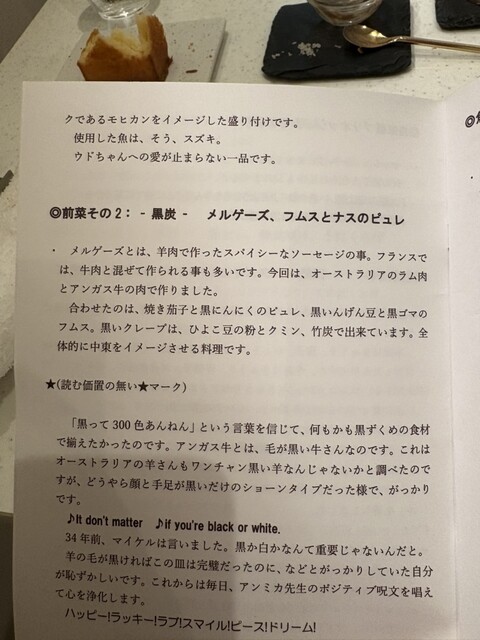 クであるモヒカンをイメージした盛り付けです。
使用した魚は、そう、スズキ。
ウドちゃんへの愛が止まらない一品です。
◎前菜その2： - 黒炭 - メルゲーズ、フムスとナスのピュレ
・ メルゲーズとは、羊肉で作ったスパイシーなソーセージの事。フランスで
は、牛肉と混ぜて作られる事も多いです。今回は、オーストラリアのラム肉
とアンガス牛の肉で作りました。
合わせたのは、焼き茄子と黒にんにくのピュレ、黒いんげん豆と黒ゴマの
フムス。黒いクレープは、ひよこ豆の粉とクミン、竹炭で出来ています。全
体的に中東をイメージさせる料理です。
★(読む価置の無い★マーク)
「黒って300色あんねん」という言葉を信じて、何もかも黒ずくめの食材
で揃えたかったのです。アンガス牛とは、毛が黒い牛さんなのです。これは
オーストラリアの羊さんもワンチャン黒い羊なんじゃないかと調べたので
すが、どうやら顔と手足が黒いだけのショーンタイプだった様で、がっかり
です。
♪It don't matter ♪if you're black or white.
34年前、マイケルは言いました。黒か白かなんて重要じゃないんだと。
羊の毛が黒ければこの皿は完璧だったのに、などとがっかりしていた自分
が恥ずかしいです。これからは毎日、アンミカ先生のポジティブ呪文を唱え
て心を浄化します。
ハッピー!ラッキー!ラブ!スマイル!ピース!ドリーム!